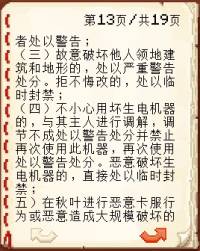 第13页/共19页
者处以警告；
（三）故意破坏他人领地建
筑和地形的，处以严重警告
处分。拒不悔改的，处以临
时封禁；
（四）不小心用坏生电机器
的，与其主人进行调解，调
节不成处以警告处分并禁止
再次使用此机器，再次使用
处以警告处分。恶意破坏生
电机器的，直接处以临时封
禁；
五）在秋叶进行恶意卡服行
为或恶意造成大规模破坏的